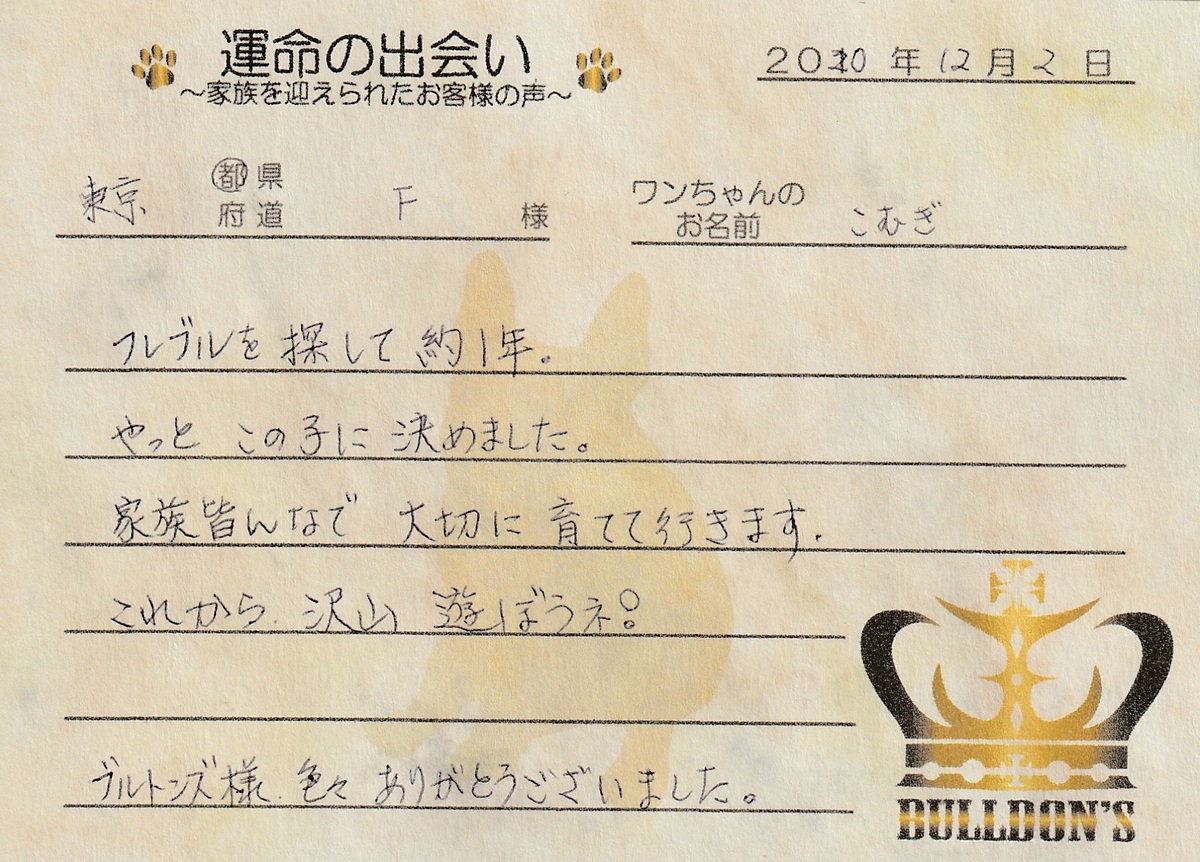 運命の出会い
～家族を迎えられたお客様の声～
2020年12月2日
東京 都県府道 F 様
ワンちゃんのお名前 こむぎ
フレブルを探して約1年。
やっとこの子に決めました。
家族皆んなで 大切に 育てて行きます.
これから、沢山 遊ぼうネ!
ブルトンズ様、色々ありがとうございました。
BULLDON'S